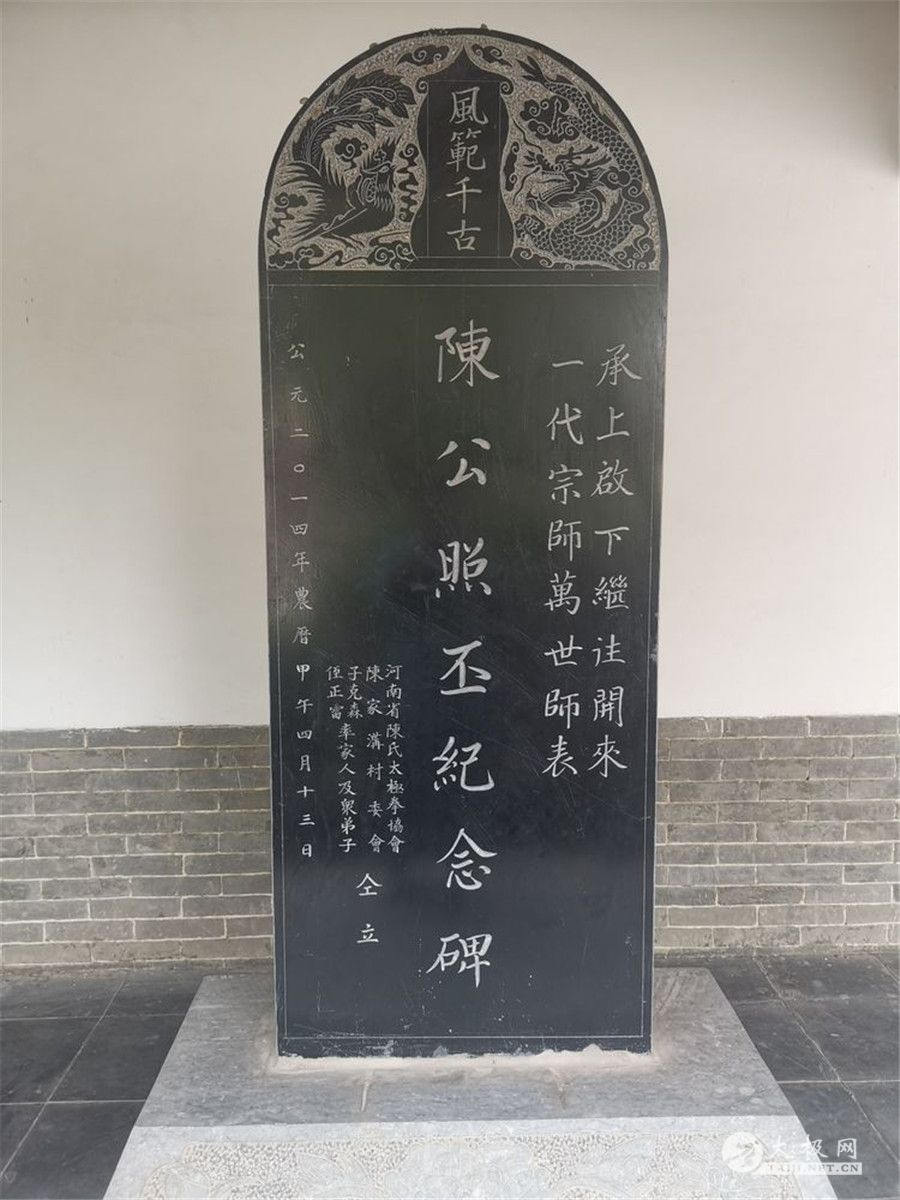 風範千古
承上啟下繼往開來
一代宗師萬世師表
陳公照丕紀念碑
河南省陳氏太極拳協會
陳家溝村委會
子克森
侄正雷
率家人及眾弟子
仝立
公元二〇一四年農曆甲午四月十三日
太极网
TAIJI.NET.CN